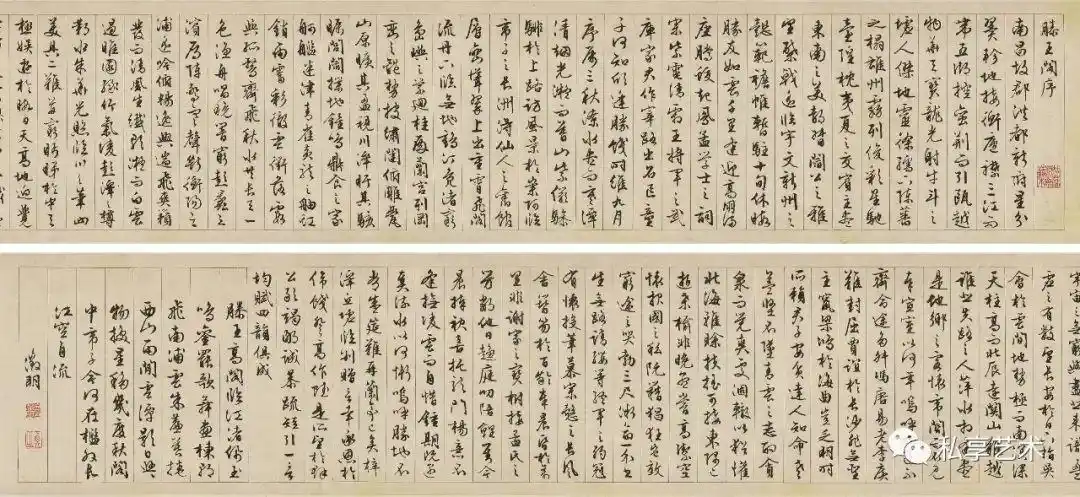 滕王閣序
南昌故郡洪都新府星分
翼軫地接衡廬襟三江而
帶五湖控蠻荊而引甌越
物華天寶龍光射牛斗之
墟人傑地靈徐孺下陳蕃
之榻雄州霧列俊彩星馳
臺隍枕夷夏之交賓主盡
東南之美都督閻公之雅
望棨戟遥臨宇文新州之
懿範襜帷暫駐十旬休暇
勝友如雲千里逢迎高朋滿
座騰蛟起鳳孟學士之詞
宗紫電清霜王將軍之武
庫家君作宰路出名區童
子何知躬逢勝餞時維九月
序屬三秋潦水盡而寒潭
清烟光凝而暮山紫儼驂
騑於上路訪風景於崇阿臨
帝子之長洲得仙人之舊館
層巒聳翠上出重霄飛閣
流丹下臨無地鶴汀鳧渚窮
島嶼之縈迴桂殿蘭宮列岡
巒之體勢披繡闥俯雕甍
山原曠其盈視川澤盱其駭
矚閭閻撲地鐘鳴鼎食之家
舸艦迷津青雀黃龍之舳虹
銷雨霽彩徹雲衢落霞
與孤鶩齊飛秋水共長天一
色漁舟唱晚響窮彭蠡之
濱雁陣驚寒聲斷衡陽之
浦遥吟俯暢逸興遄飛爽籟
發而清風生纖歌凝而白雲
遏睢園綠竹氣凌彭澤之樽
鄴水朱華光照臨川之筆四
美具二難并窮睇眄於中天
極娛遊於暇日天高地迥覺
虛之有數望長安於日下指吳
會於雲間地勢極而南溟深
天柱高而北辰遠關山難越
誰悲失路之人萍水相逢盡
是他鄉之客懷帝閽而不見
奉宣室以何年嗚呼時運不
齊命途多舛馮唐易老李廣
難封屈賈誼於長沙非無聖
主竄梁鴻於海曲豈乏明時
所賴君子安貧達人知命老
益堅不墜青雲之志酌貪
泉而覺爽處涸轍以猶懽
北海雖賒扶搖可接東隅已
逝桑榆非晚孟嘗高潔空
懷報國之私阮籍猖狂豈效
窮途之哭勃三尺微命一介書
生無路請纓等終軍之弱冠
有懷投筆慕宗慤之長風
舍簪笏於百齡奉晨昏於萬
里非謝家之寶樹接孟氏之
芳鄰他日趨庭叨陪鯉對今
晨捧袂喜托龍門楊意不
逢撫凌雲而自惜鍾期既遇
奏流水以何慚嗚呼勝地不
常盛筵難再蘭亭已矣梓
澤丘墟臨別贈言幸承恩於
偉餞登高作賦是所望於群
公敢竭鄙誠恭疏短引一言
均賦四韻俱成
滕王高閣臨江渚佩玉
鳴鸞罷歌舞畫棟朝
飛南浦雲朱簾暮捲
西山雨閒雲潭影日悠
物換星移幾度秋閣
中帝子今何在檻外長
江空自流
徵明
私享艺术